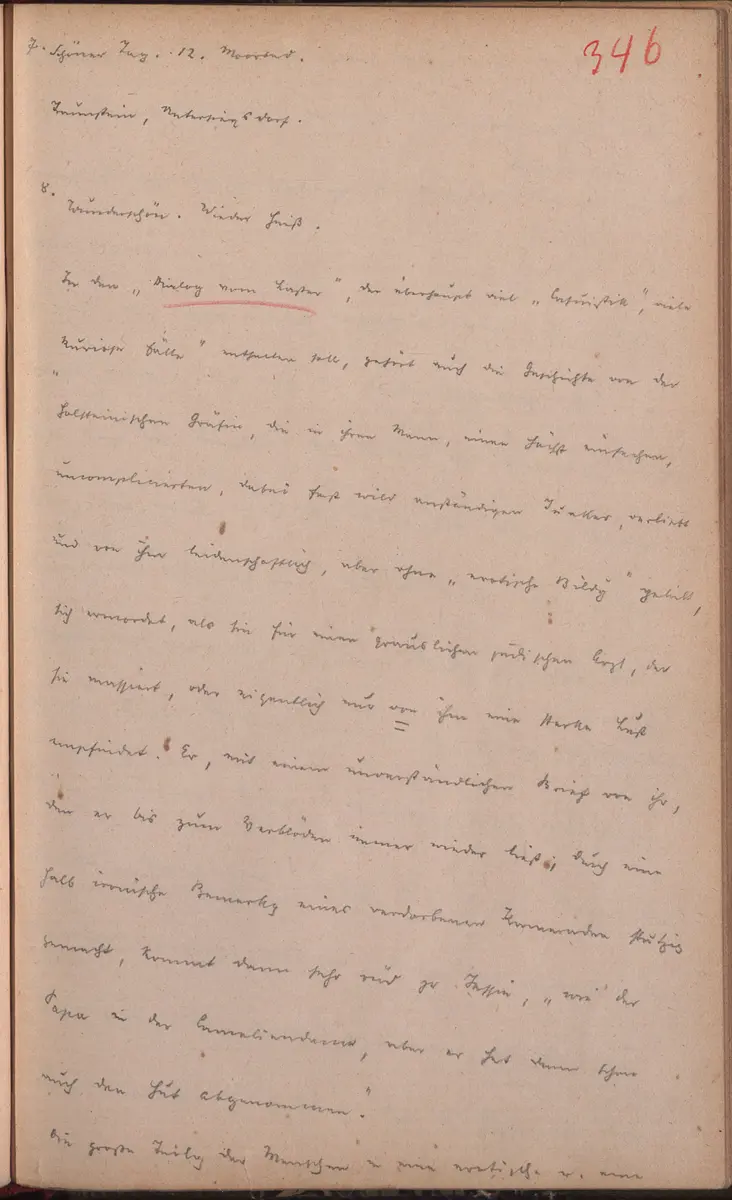 346
7. Schöner Tag. 12. Moorbad.
Traunstein, Untersiegsdorf.
8.
Wunderschön. Wieder heiß.
In den „Dialog vom Laster“, der überhaupt viel „Casuistik“, viele
„kuriose Fälle“ enthalten soll, gehört auch die Geschichte von der
holsteinischen Gräfin, die in ihren Mann, einen höchst einfachen,
uncomplicierten, dabei fast wild anständigen Junker, verliebt
und von ihm leidenschaftlich, aber ohne „erotische Bildg“ geliebt,
sich ermordet, als sie für einen grauslichen jüdischen Arzt, der
sie massiert, oder eigentlich nur von ihm eine starke Lust
empfindet. Er, mit einem unverständlichen Brief von ihr,
den er bis zum Verblöden immer wieder liest, durch eine
halb ironische Bemerkg eines verdorbenen Kameraden stutzig
gemacht, kommt dann sehr rüd zr , „wie der
Papa in der Cameliendame, aber er hat dann schon
auch den Hut abgenommen“.
Die große Teilg der Menschen in eine erotische u. eine